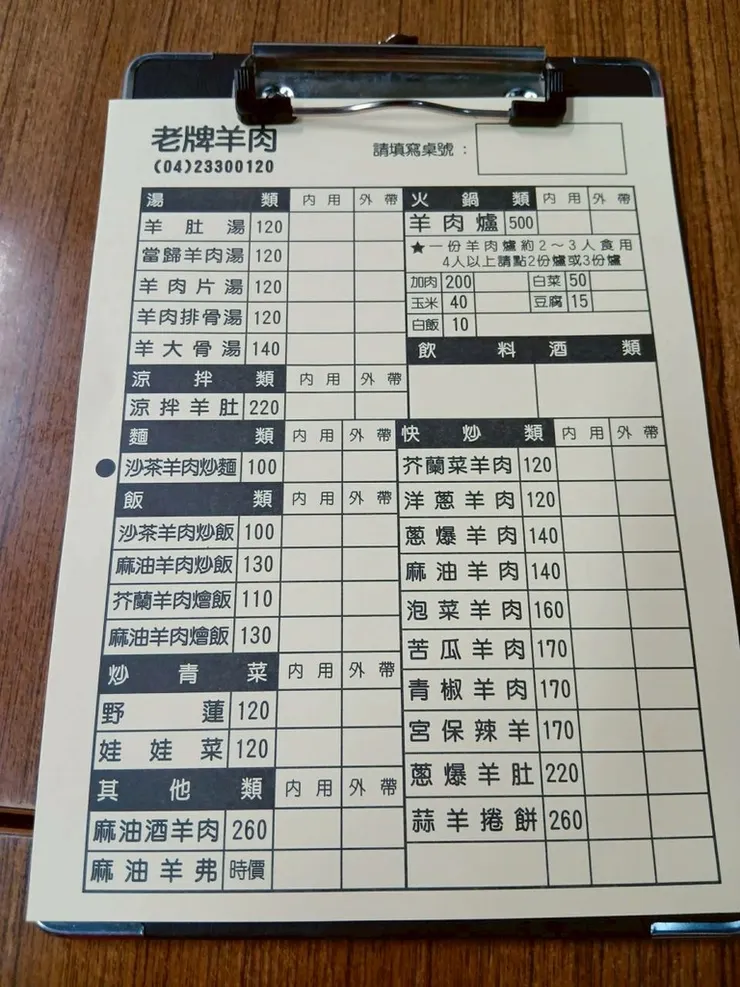 老牌羊肉
(04)23300120
請填寫桌號：
湯類 內用 外帶
羊肚湯 120
當歸羊肉湯 120
羊肉片湯 120
羊肉排骨湯 120
羊大骨湯 140
涼拌類 內用 外帶
涼拌羊肚 220
麵類 內用 外帶
●沙茶羊肉炒麵 100
飯類 內用 外帶
沙茶羊肉炒飯 100
麻油羊肉炒飯 130
芥蘭羊肉燴飯 110
麻油羊肉燴飯 130
炒青菜 內用 外帶
野蓮 120
娃娃菜 120
其他類 內用 外帶
麻油酒羊肉 260
麻油羊弗 時價
火鍋類 內用 外帶
羊肉爐 500
★一份羊肉爐約2～3人食用
4人以上請點2份爐或3份爐
加肉 200 白菜 50
玉米 40 豆腐 15
白飯 10
飲料酒類
快炒類 內用 外帶
芥蘭菜羊肉 120
洋蔥羊肉 120
蔥爆羊肉 140
麻油羊肉 140
泡菜羊肉 160
苦瓜羊肉 170
青椒羊肉 170
宮保辣羊 170
蔥爆羊肚 220
蒜羊捲餅 260